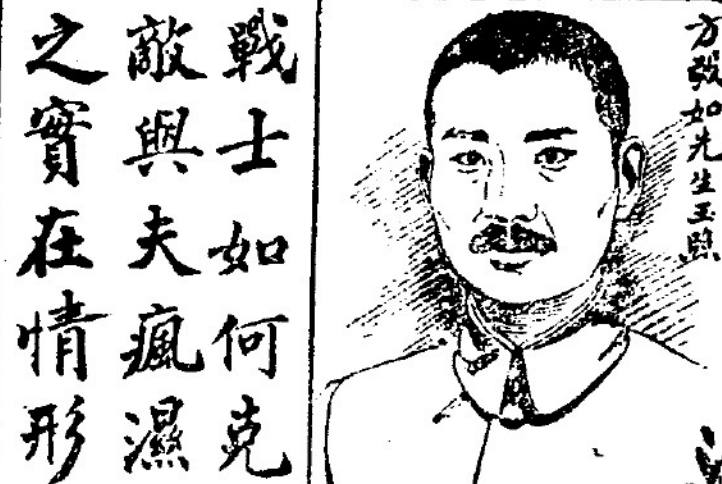 方敬如先生玉照
戰士如何克
敵與夫瘋濕
之實在情形